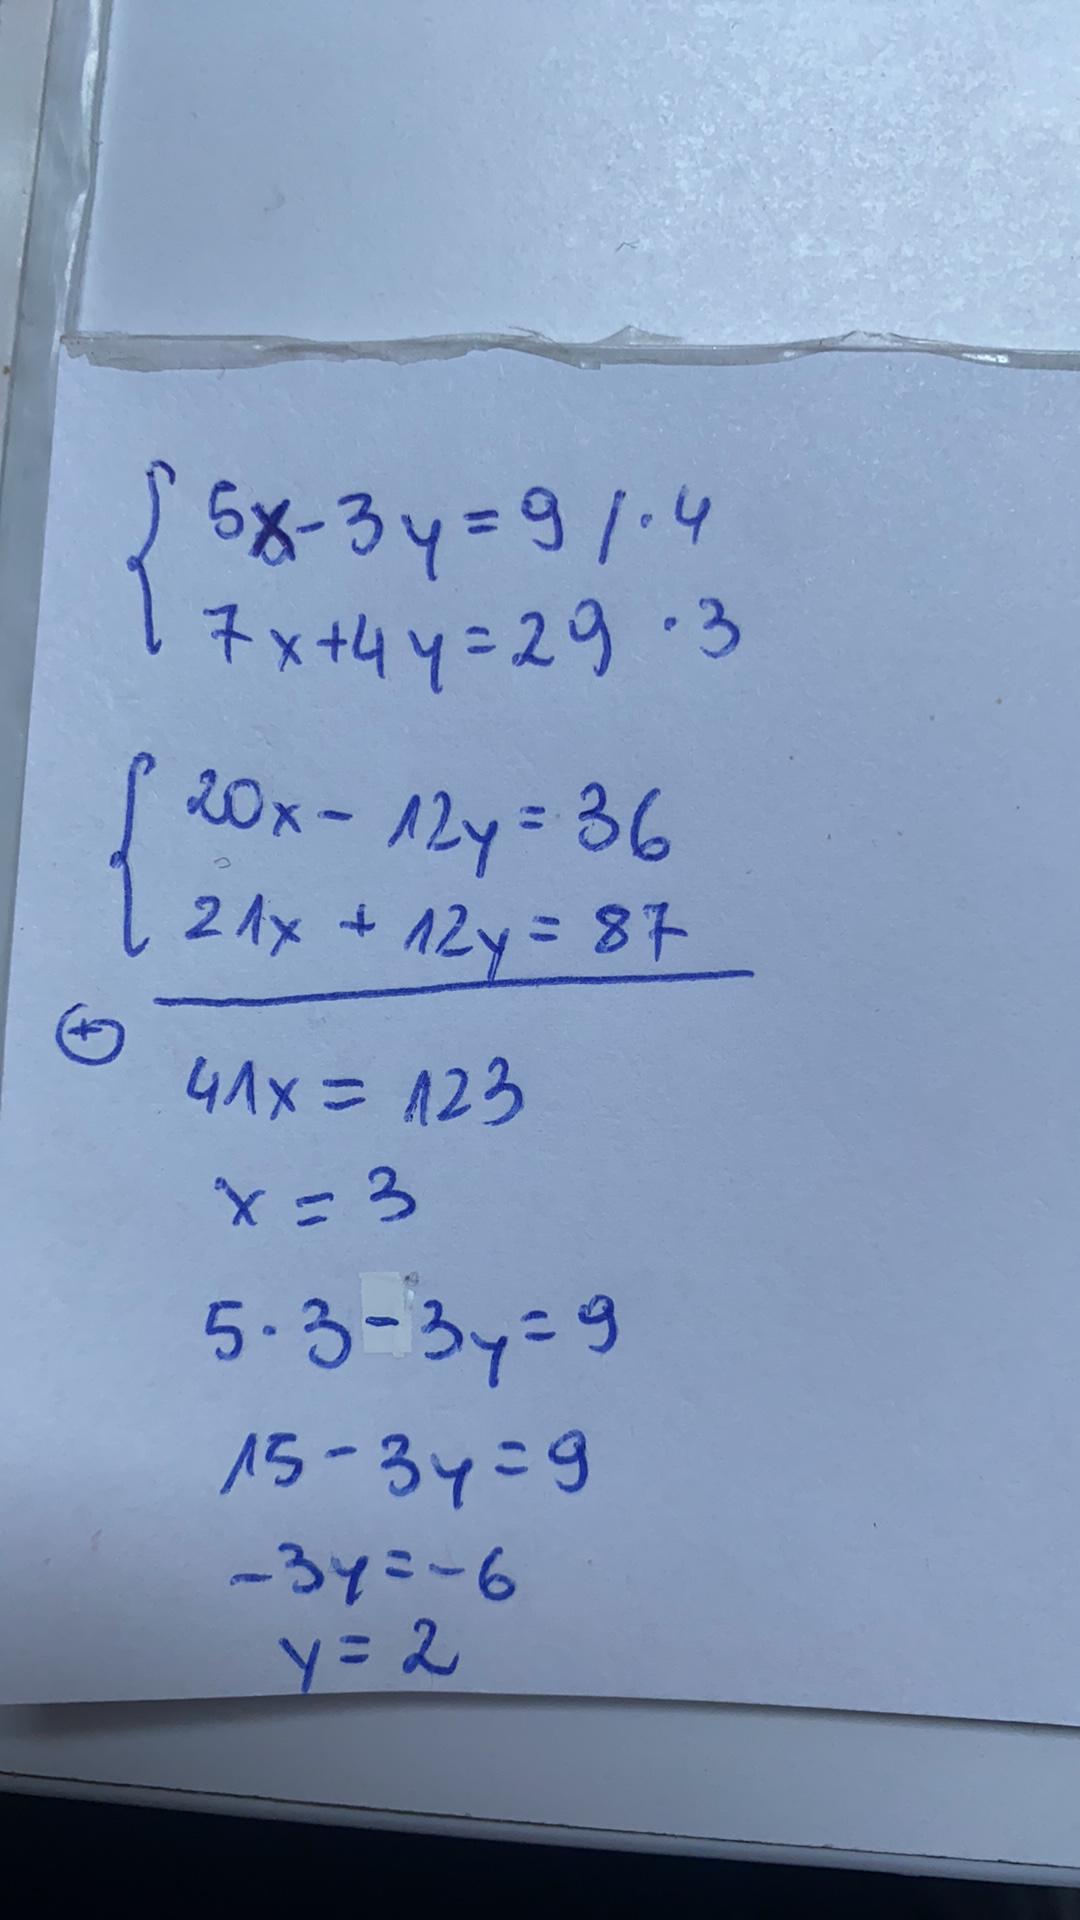 5x-3y=9 /·4
7x+4y=29 ·3
20x- 12y=36
21x + 12y=87
+
41x= 123
x=3
5·3-3y=9
15-3y=9
-3y=-6
y=2